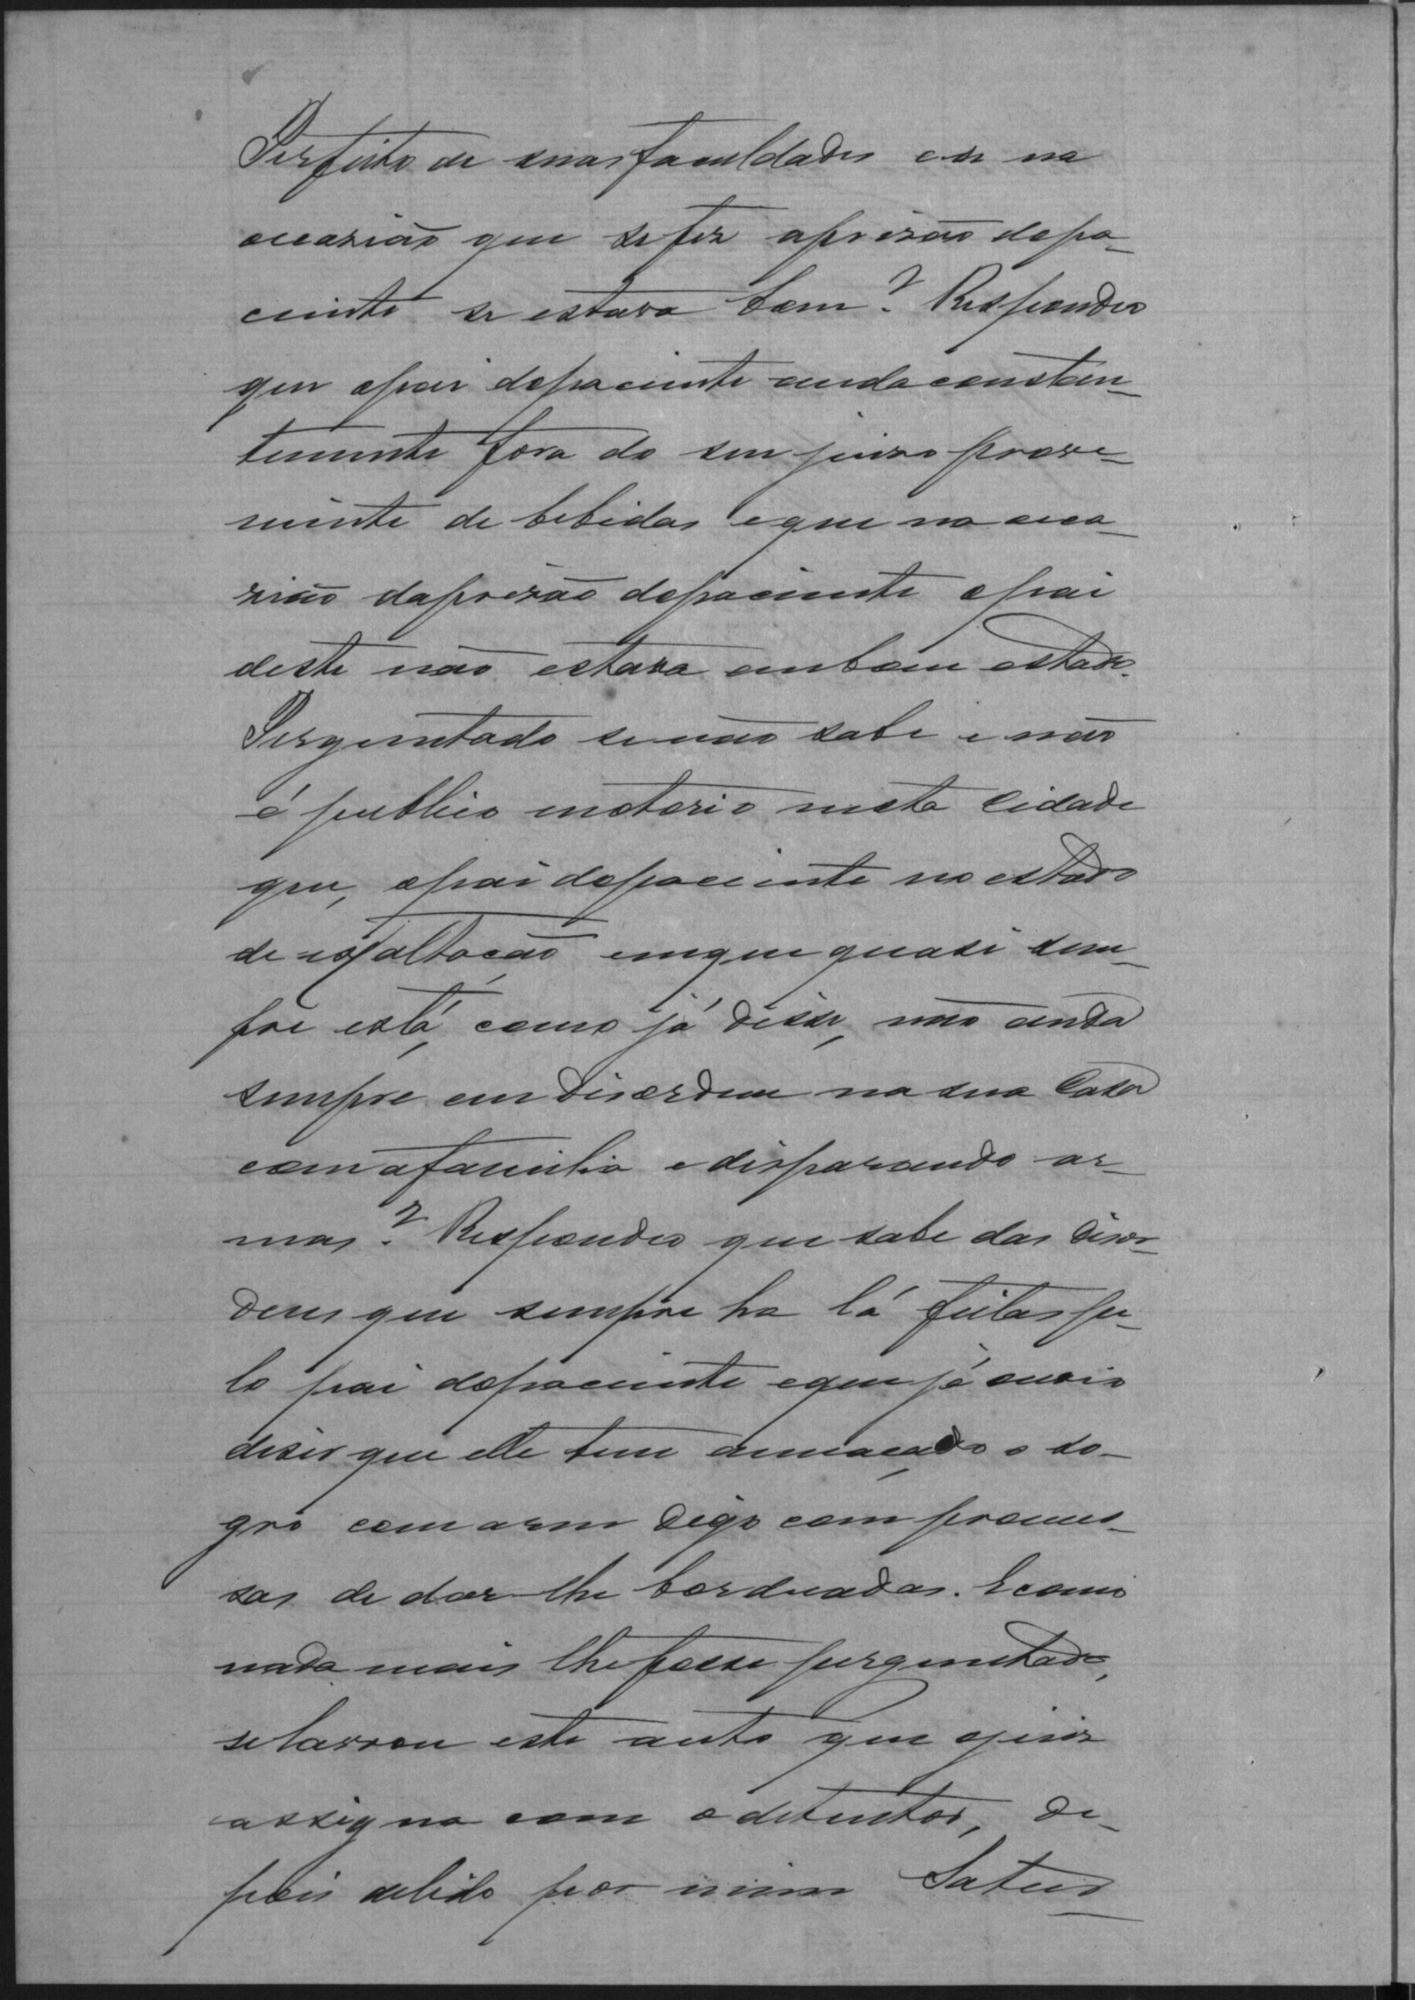 Perfeito de suas faculdades e se na
occazião que se fez a prizão do pa-
ciente se estava bom? Respondeo
que o pai do paciente anda constan-
temente fora do seu juizo prove-
niente de bebidas e que na occa-
zião da prizão do paciente o pai
deste não estava em bom estado.
Perguntado se não sabe e não
é publico e notorio nesta Cidade
que, o pai do paciente no estado
de exaltação em que quasi sem-
pre está, como já disse, não anda
sempre em disordem na sua Casa
com a familia e disparando ar-
mas? Respondeo que sabe das disor-
dens que sempre ha lá feitas pe-
lo pai do paciente e que já ouvio
diser que elle tem ameaçado o so-
gro com arm digo com promes-
sas de dar-lhe borduadas. E como
nada mais lhe fosse perguntado,
se lavrou este auto que o juiz
assigna com o detentor, de-
pois de lido por mim Satur